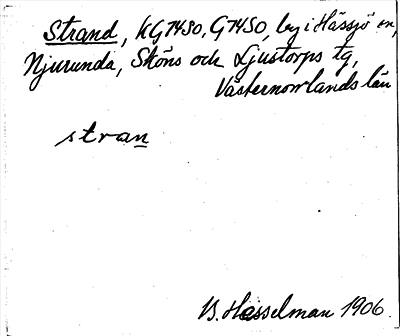 Strand, KG7450, G7450, by i Hässjö sn,
Njurunda, Sköns och Ljustorps tg,
Västernorrlands län
stran
B. Hesselman 1906.